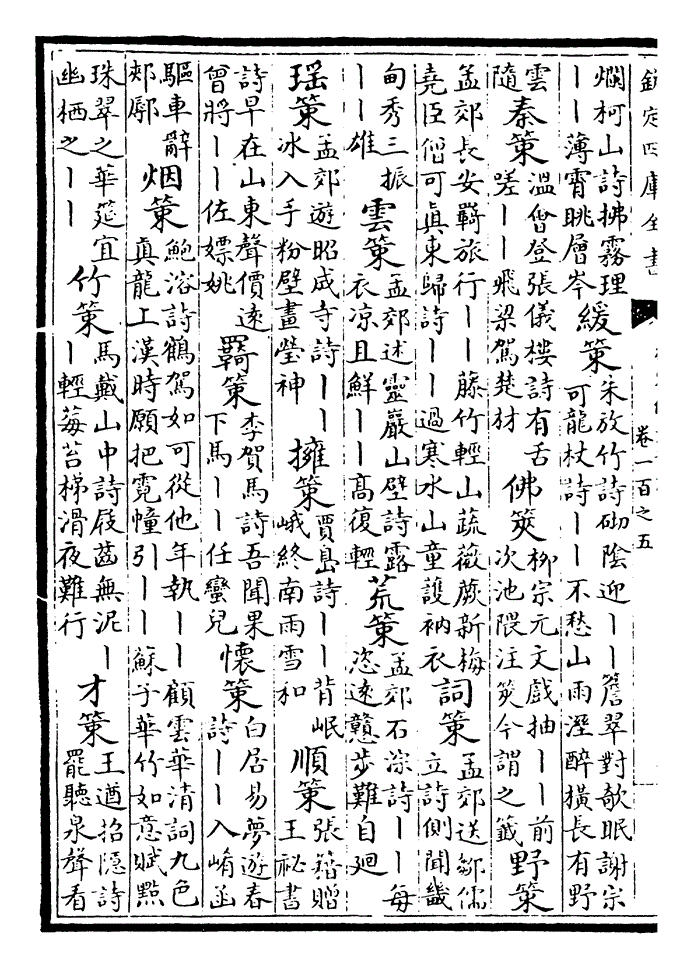 欽定四庫全書
卷一百之五
爛柯山詩拂霧理
——薄霄眺層岑
緩策
朱放竹詩砌陰迎——簷翠對欹眠謝宗
可龍杖詩——不愁山雨溼醉橫長有野
雲
隨
秦策
溫會登張儀樓詩有舌
蹉——飛梁駕楚材
佛筴
柳宗元文戲抽——前
次池隈注筴今謂之籤
野策
孟郊長安羈旅行——藤竹輕山蔬薇蕨新梅
堯臣僧可真東歸詩——過寒水山童護衲衣
詞策
孟郊送鄒儒
立詩側聞畿
甸秀三振
——雄
雲策
孟郊述靈巖山壁詩露
衣凉且鮮——高復輕
荒策
孟郊石淙詩——每
恣遠戇步難自廻
瑶策
孟郊遊昭成寺詩——
冰入手粉壁畫瑩神
擁策
賈島詩——背岷
峨終南雨雪和
順策
張籍贈
王祕書
詩早在山東聲價遠
曾將——佐嫖姚
羇策
李賀馬詩吾聞果
下馬——任蠻兒
懷策
白居易夢遊春
詩——入崤函
驅車辭
郟鄏
烟策
鮑溶詩鶴駕如可從他年執——顧雲華清詞九色
真龍上漢時願把霓幢引——蘇子華竹如意賦點
珠翠之華筵宜
幽栖之——
竹策
馬戴山中詩屐齒無泥—
—輕莓苔梯滑夜難行
才策
王遒招隱詩
罷聽泉聲看